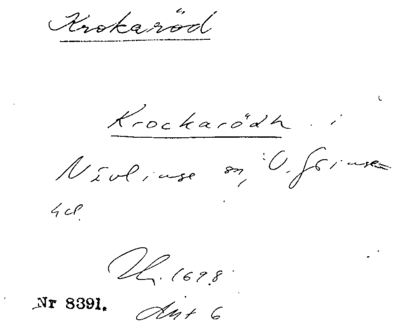 Krokaröd
Krockarödh i
Nävlinge sn, V. Göinge
hd.
1698.
Nr 8391.
6